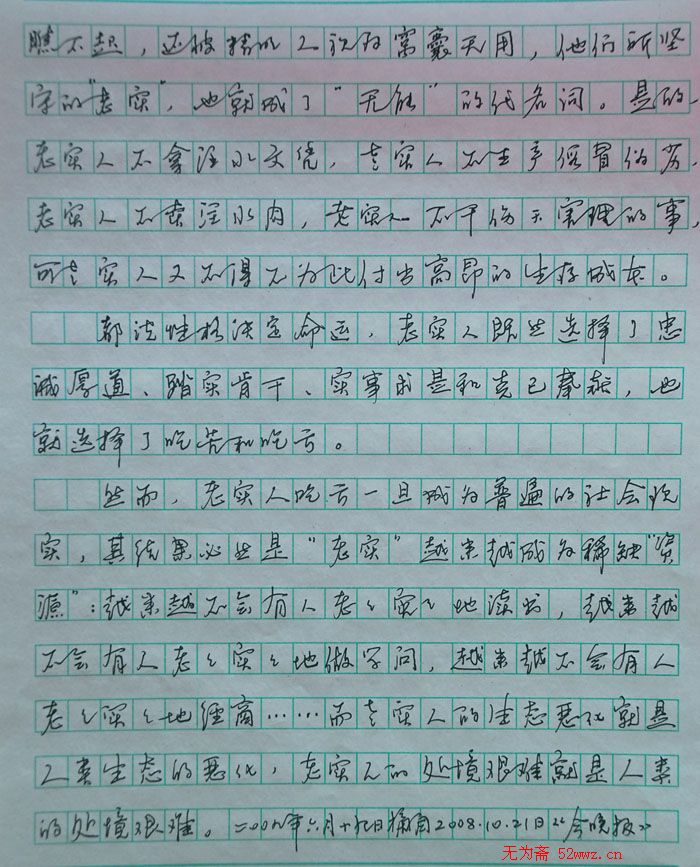 瞧不起，还被精明人视为窝囊无用，他们所坚
守的“老实”，也就成了“无能”的代名词。是的，
老实人不会注水文凭，老实人不生产假冒伪劣，
老实人不卖注水肉，老实人不干伤天害理的事，
可老实人又不得不为此付出高昂的生存成本。
都说性格决定命运，老实人既然选择了忠
诚厚道、踏实肯干、实事求是和克己奉献，也
就选择了吃苦和吃亏。
然而，老实人吃亏一旦成为普遍的社会现
实，其结果必然是“老实”越来越成为稀缺“资
源”：越来越不会有人老々实々地读书，越来越
不会有人老々实々地做学问，越来越不会有人
老々实々地经商……而老实人的生态恶化就是
人类生态的恶化，老实人的处境艰难就是人类
的处境艰难。年六月十九日摘自2008.10.21日《今晚报》
无为斋 52wwz.cn